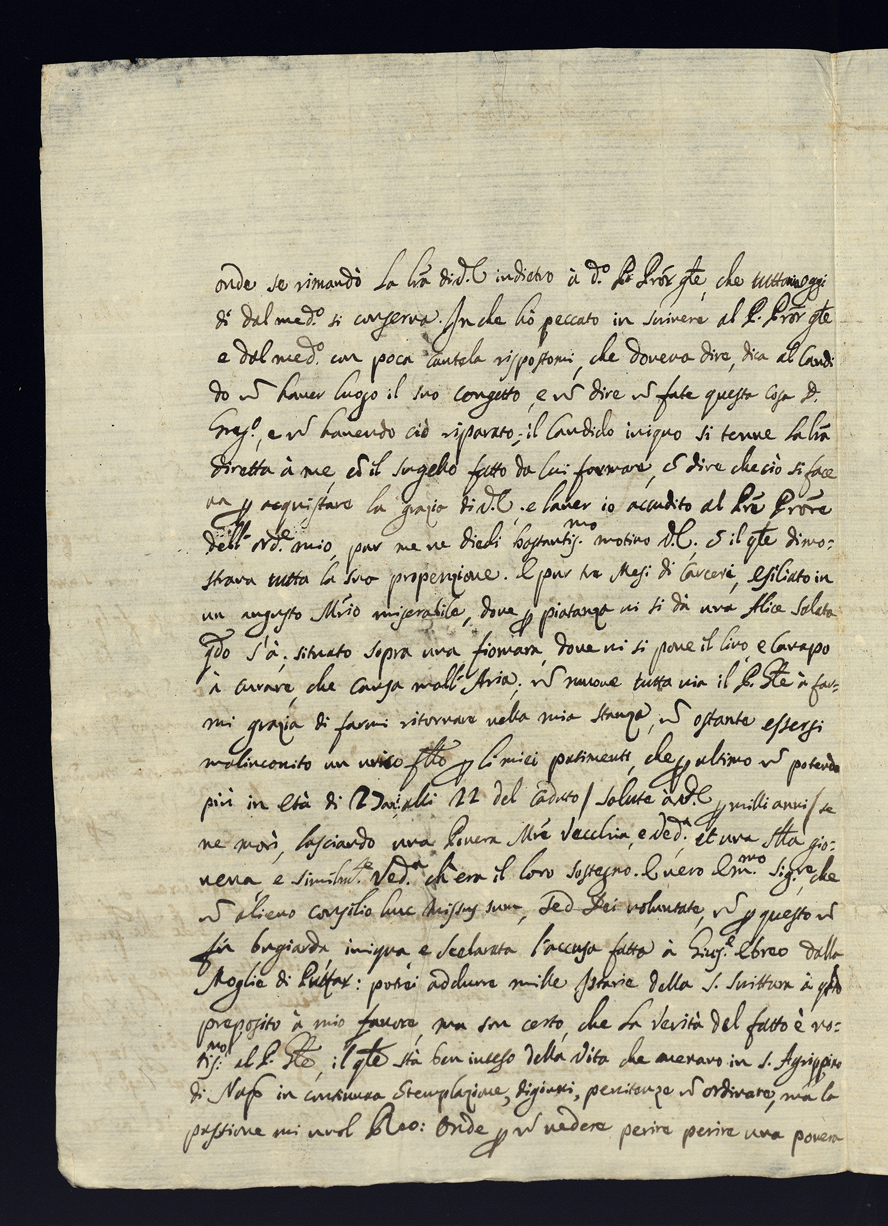 onde se rimandò la lrã di V.E. indietro à d.º P. Prõr Gle, che tuttavia oggi
dì dal med.º si conserva. In che hò peccato in scrivere al P. Prõr Gle
e dal med.º con poca cautela rispostomi, che doveva dire, dica al Candi
do nõ haver luogo il suo congetto, e nõ dire nõ fate questa cosa P.
Greg.º, e nõ havendo ciò riparato, il Candido iniquo si tenne la lrã
diretta à me, cõ il sugello fatto da lui formare, cõ dire che ciò si face
va p acquistare la grazia di V.E., e haver io accudito al Prẽ Prõre
dell'ord.e mio, pur me ne diedi bastantis.mo motivo V.E. cõ il Gle dimo=
strava tutta la sua propenzione. E pur tre Mesi di Carceri, esiliato in
un angusto Mrio miserabile, dove p piatanza vi si dà una Alice salata
qdo s'à, situato sopra una fiomara, dove vi si pone il lino, e Canapo
à curare, che causa mall'Aria; nõ muove tutta via il P. Gle à far=
mi grazia di farmi ritornare nella mia stanza, nõ ostante essersi
malinconito un unico flło p li miei patimenti, che p ultimo nõ potendo
più in età di 27 alli 22 del Caduto / salute à V.E. p mill'anni / se
ne morì, lasciando una Povera Mrẽ Vecchia, e Ved.ª et una flla gio=
vena, e similm.te Ved.ª ch'era il loro sostegno. È vero Em.mo Sig.re, che
nõ alieno consilio huc missus sum, sed Dei voluntate, nõ p questo nõ
fù bugiarda, iniqua, e scelarata l'accusa fatta à Gius.e Ebreo dalla
Moglie di Putifar: potrei addurre mille Istorie della S. Scrittura à qsto
proposito à mio favore, ma son certo, che la verità del fatto è no=
tis.mo al P. Gle, il qle stà ben inteso della vita che menavo in S. Agrippino
di Nap. in continua Cõtemplazione, digiuni, penitenze nõ ordinarie, mà la
passione mi vuol Reo: Onde p nõ vedere perire perire una povera